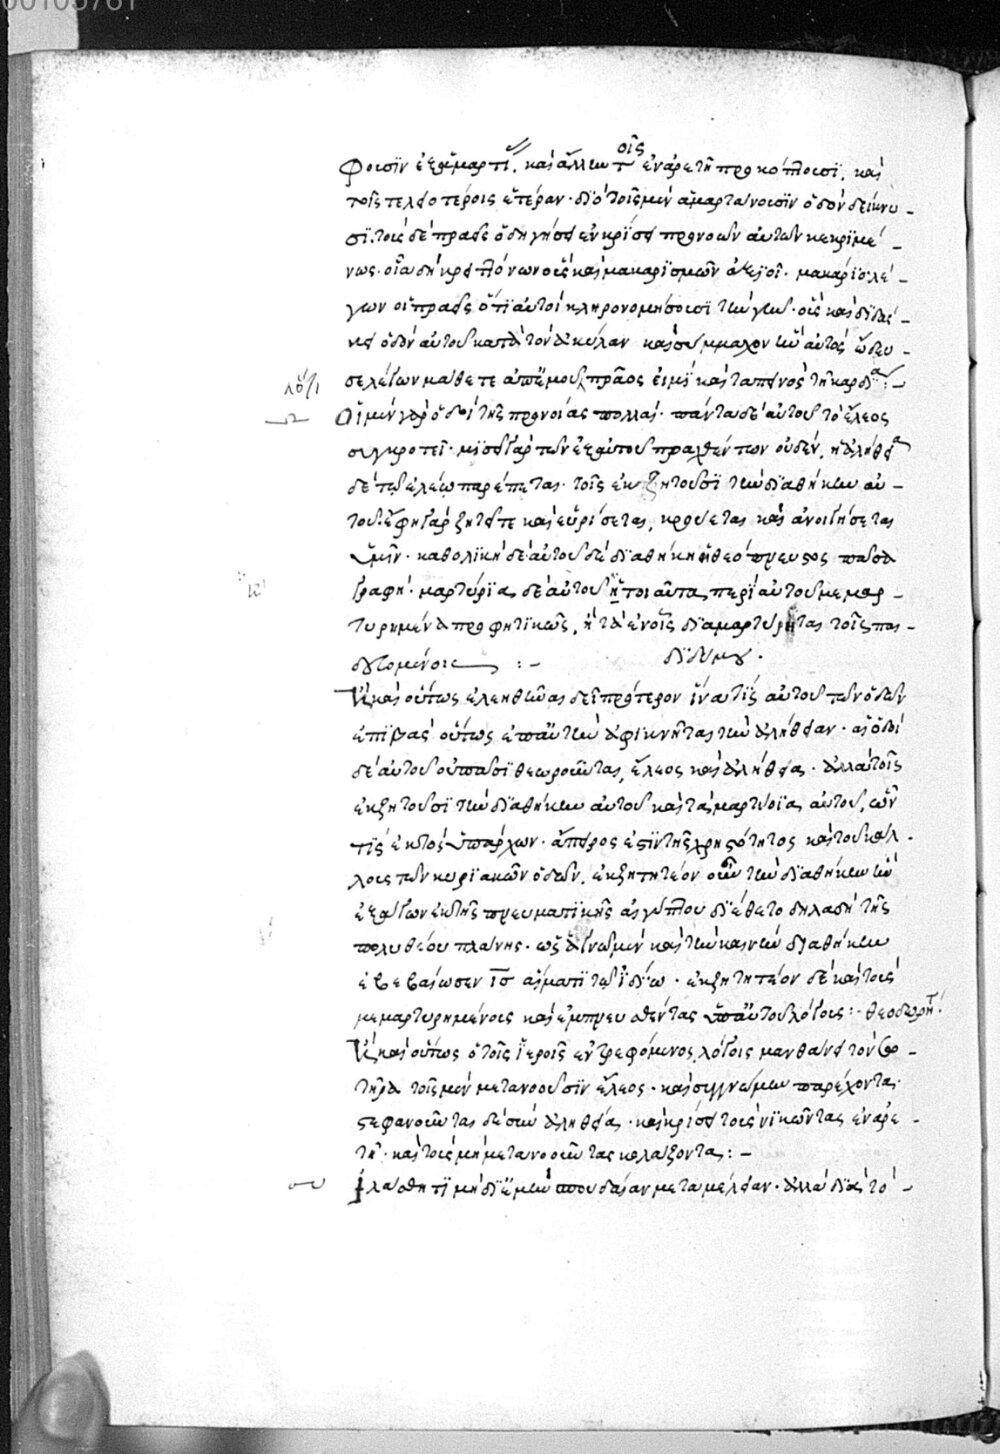 φουσϊν ἐξ ἁμαρτί, καὶ ἄλλην τοῖς ἐν ἀρετῆ προκόπτουσϊ, καὶ
τοῖς τελειοτέροις ἑτέραν· διὸ τοῖς μὲν ἁμαρτάνουσϊν ὁδὸν δείκνυ-
σϊ. τοὺς δὲ πραεῖς ὁδηγήσει ἐν κρίσει προνοῶν αὐτῶν κεκριμέ-
νως. μακαρϊσμῶν μακάριοι λέ-
γων οἱ πραεῖς ὅτϊ αὐτοὶ κληρονομήσουσϊ τὴν γῆν· οὓς καὶ διδάσ-
κει ὁδὸν αὐτοῦ κατὰ τὸν ἀκύλαν καὶ σύμμαχον ἣν αὐτὸς ὥδευ-
σε λέγων μάθετε ἀπ' ἐμοῦ, πρᾶος εἰμϊ καὶ ταπεινὸς τῆ καρδϊα:-
Οἱ μὲν γὰρ ὁδοὶ τῆς προνοίας πολλαί· πάντα δὲ αὐτοῦ τὸ ἔλεος
συγκροτεῖ· μισεῖ γὰρ τῶν ἐξ αὐτοῦ πραχθέντων οὐδέν, ἡ ἀλήθεια
δὲ τῷ ἐλέῳ παρέπεται· τοῖς ἐκζητοῦσϊ τὴν διαθήκην αὐ-
τοῦ. ἔφη γὰρ ζητεῖτε καὶ εὑρίσεται, κρούεται καὶ ἀνοιγήσεται
ὑμῖν· καθολϊκὴ δὲ αὐτοῦ διαθήκη ἡ θεόπνευστος πᾶσα
γραφή· μαρτύρϊα δὲ αὐτοῦ ἤτοι αὐτὰ περὶ αὐτοῦ μεμαρ-
τυρημένα προφητϊκῶς, ἢ τὰ ἐν οἷς διαμαρτύρηται τοῖς παι-
δευομένοις :- διδύμου.
καὶ οὕτως ἐλεηθῆναι δεῖ πρότερον ἵνα τὶς αὐτοῦ τῶν ὁδῶν
ἐπιβὰς οὕτως ἐπ' αὐτὴν ἀφικνῆται τὴν ἀλήθειαν· αἱ ὁδοὶ
δὲ αὐτοῦ οὐ πᾶσϊ θεωροῦνται, ἔλεος καὶ ἀλήθεια· ἀλλὰ τοῖς
ἐκζητοῦσϊ τὴν διαθήκην αὐτοῦ καὶ τὰ μαρτύρια αὐτοῦ, ὧν
τὶς ἐκτὸς ὑπάρχων· ἄπειρος ἐστὶν τῆς χρηστότητος καὶ τοῦ κάλ-
λους τῶν κυριακῶν ὁδῶν. ἐκζητητέον οὖν τὴν διαθήκην ἣν
ἐξάγων ἐκ τῆς πνευματϊκῆς αἰγύπτου διέθετο δηλαδὴ τῆς
πολυθέου πλάνης· καὶ τὴν καινὴν διαθήκην
ἐβεβαίωσεν ις αἵματϊ τῷ ἰδίω· ἐκζητητέον δὲ καὶ τοὺς
μεμαρτυρημένους καὶ ἐμπνευσθέντας ὑπ' αὐτοῦ λόγους:- θεοδωρήτ
καὶ οὕτως ὁ τοῖς ἱεροῖς ἐντρεφόμενος λόγοις μανθάνει τὸν σω-
τῆρα τοῖς μὲν μετανοοῦσϊν ἔλεος· καὶ συγγνώμην παρέχοντα·
στεφανοῦντα δὲ σὺν ἀληθεία· καὶ κρίσει τοὺς νϊκῶντας ἐν ἀρε-
τῆ· καὶ τοὺς μὴ μετανοοῦντας κολάζοντα:-
ἱλάσθητϊ μὴ δι' ἐμὴν σπουδαίαν μεταμέλειαν· ἀλλὰ διὰ τὸ-